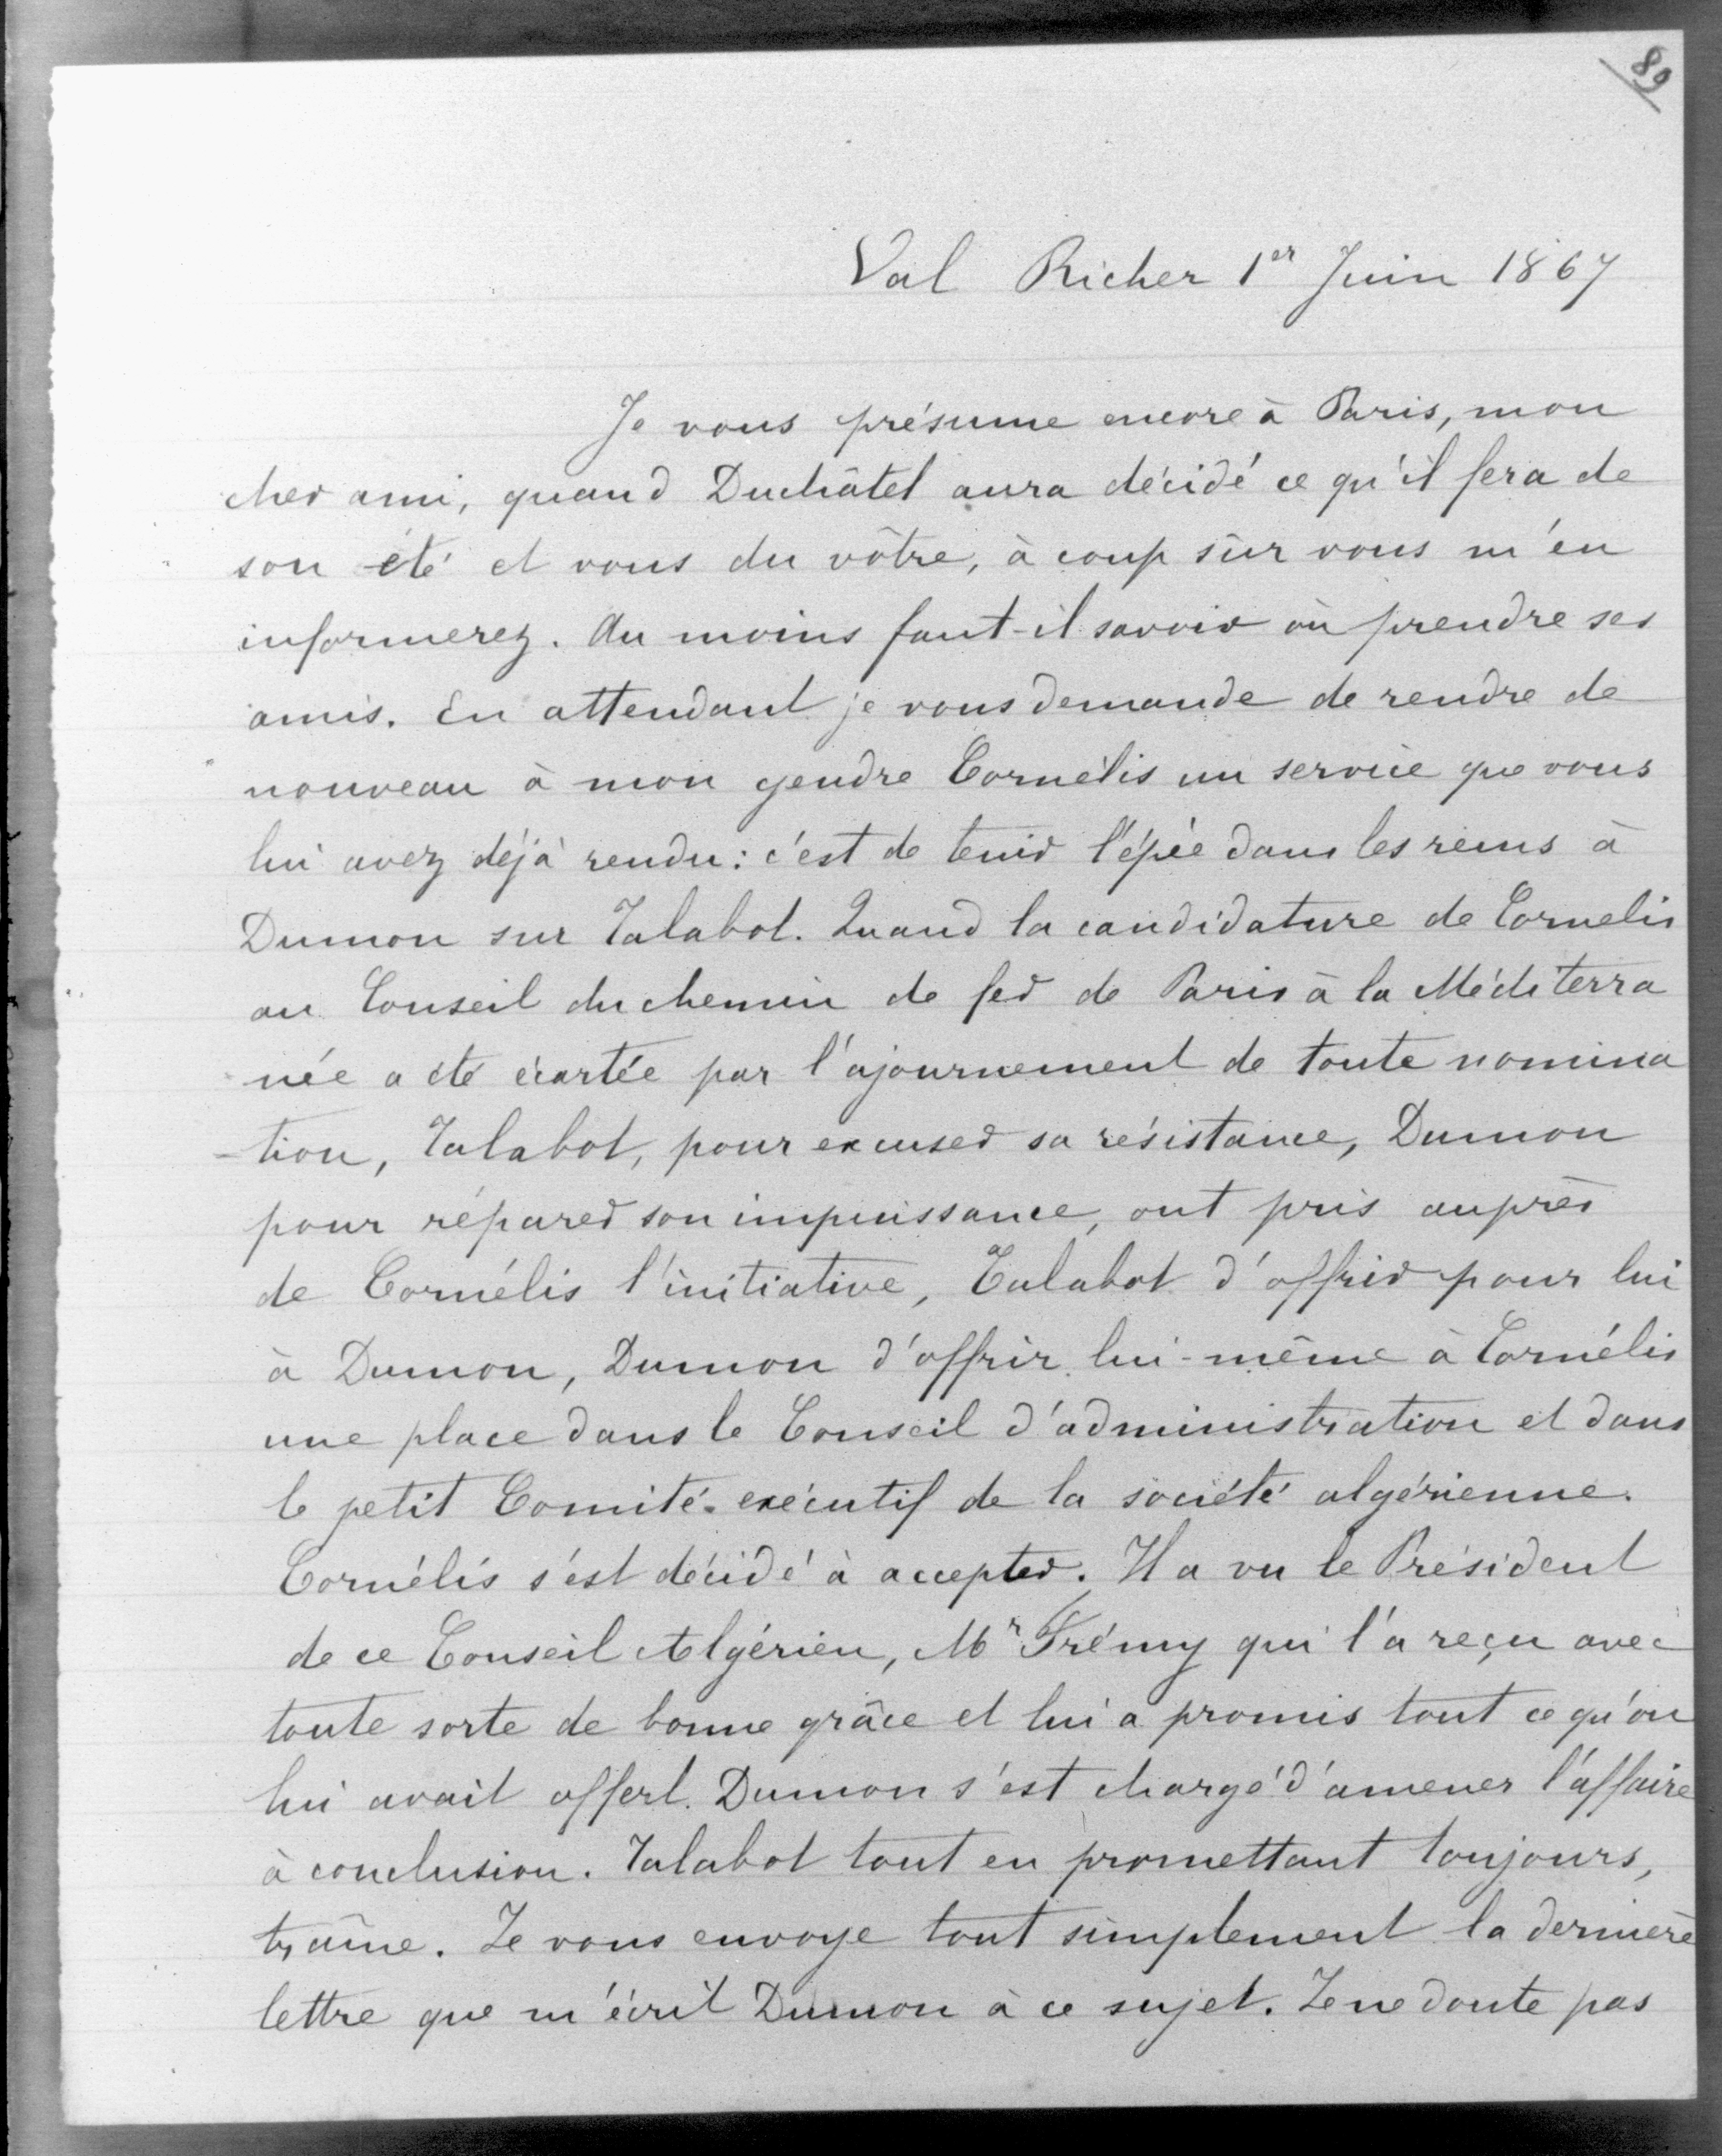 89
Val Richer 1er Juin 1867
Je vous présume encore à Paris, mon
cher ami, quand Duchâtel aura décidé ce qu'il fera de
son été et vous du vôtre, à coup sûr vous m'en
informerez. Au moins faut-il savoir où prendre ses
amis. En attendant je vous demande de rendre de
nouveau à mon gendre Cornélis un service que vous
lui avez déjà rendu : c'est de tenir l'épée dans les reins à
Dumon sur Talabot. Quand la candidature de Cornelis
au Conseil du chemin de fer de Paris à la Méditerra
née a été écartée par l'ajournement de toute nomina
-tion, Talabot, pour excuser sa résistance, Dumon
pour réparer son impuissance, ont pris auprès
de Cornélis l'initiative, Talabot d'offrir pour lui
à Dumon, Dumon d'offrir lui-même à Cornélis
une place dans le Conseil d'administration et dans
le petit Comité-exécutif de la société algérienne.
Cornélis s'est décidé à accepter. Il a vu le Président
de ce Conseil Algérien, Mr Frémy qui l'a reçu avec
toute sorte de bonne grâce et lui a promis tout ce qu'on
lui avait offert. Dumon s'est chargé d'amener l'affaire
à conclusion. Talabot tout en promettant toujours,
traîne. Je vous envoye tout simplement la dernière
lettre que m'écrit Dumon à ce sujet. Je ne doute pas